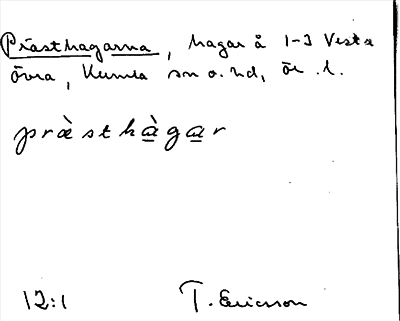 Prästhagarna, hagar å 1-3 Vestra
Övra, Kumla sn o. hd, Ör. l.
præ̀sthà̱ga̱r
12:1 T. Ericsson